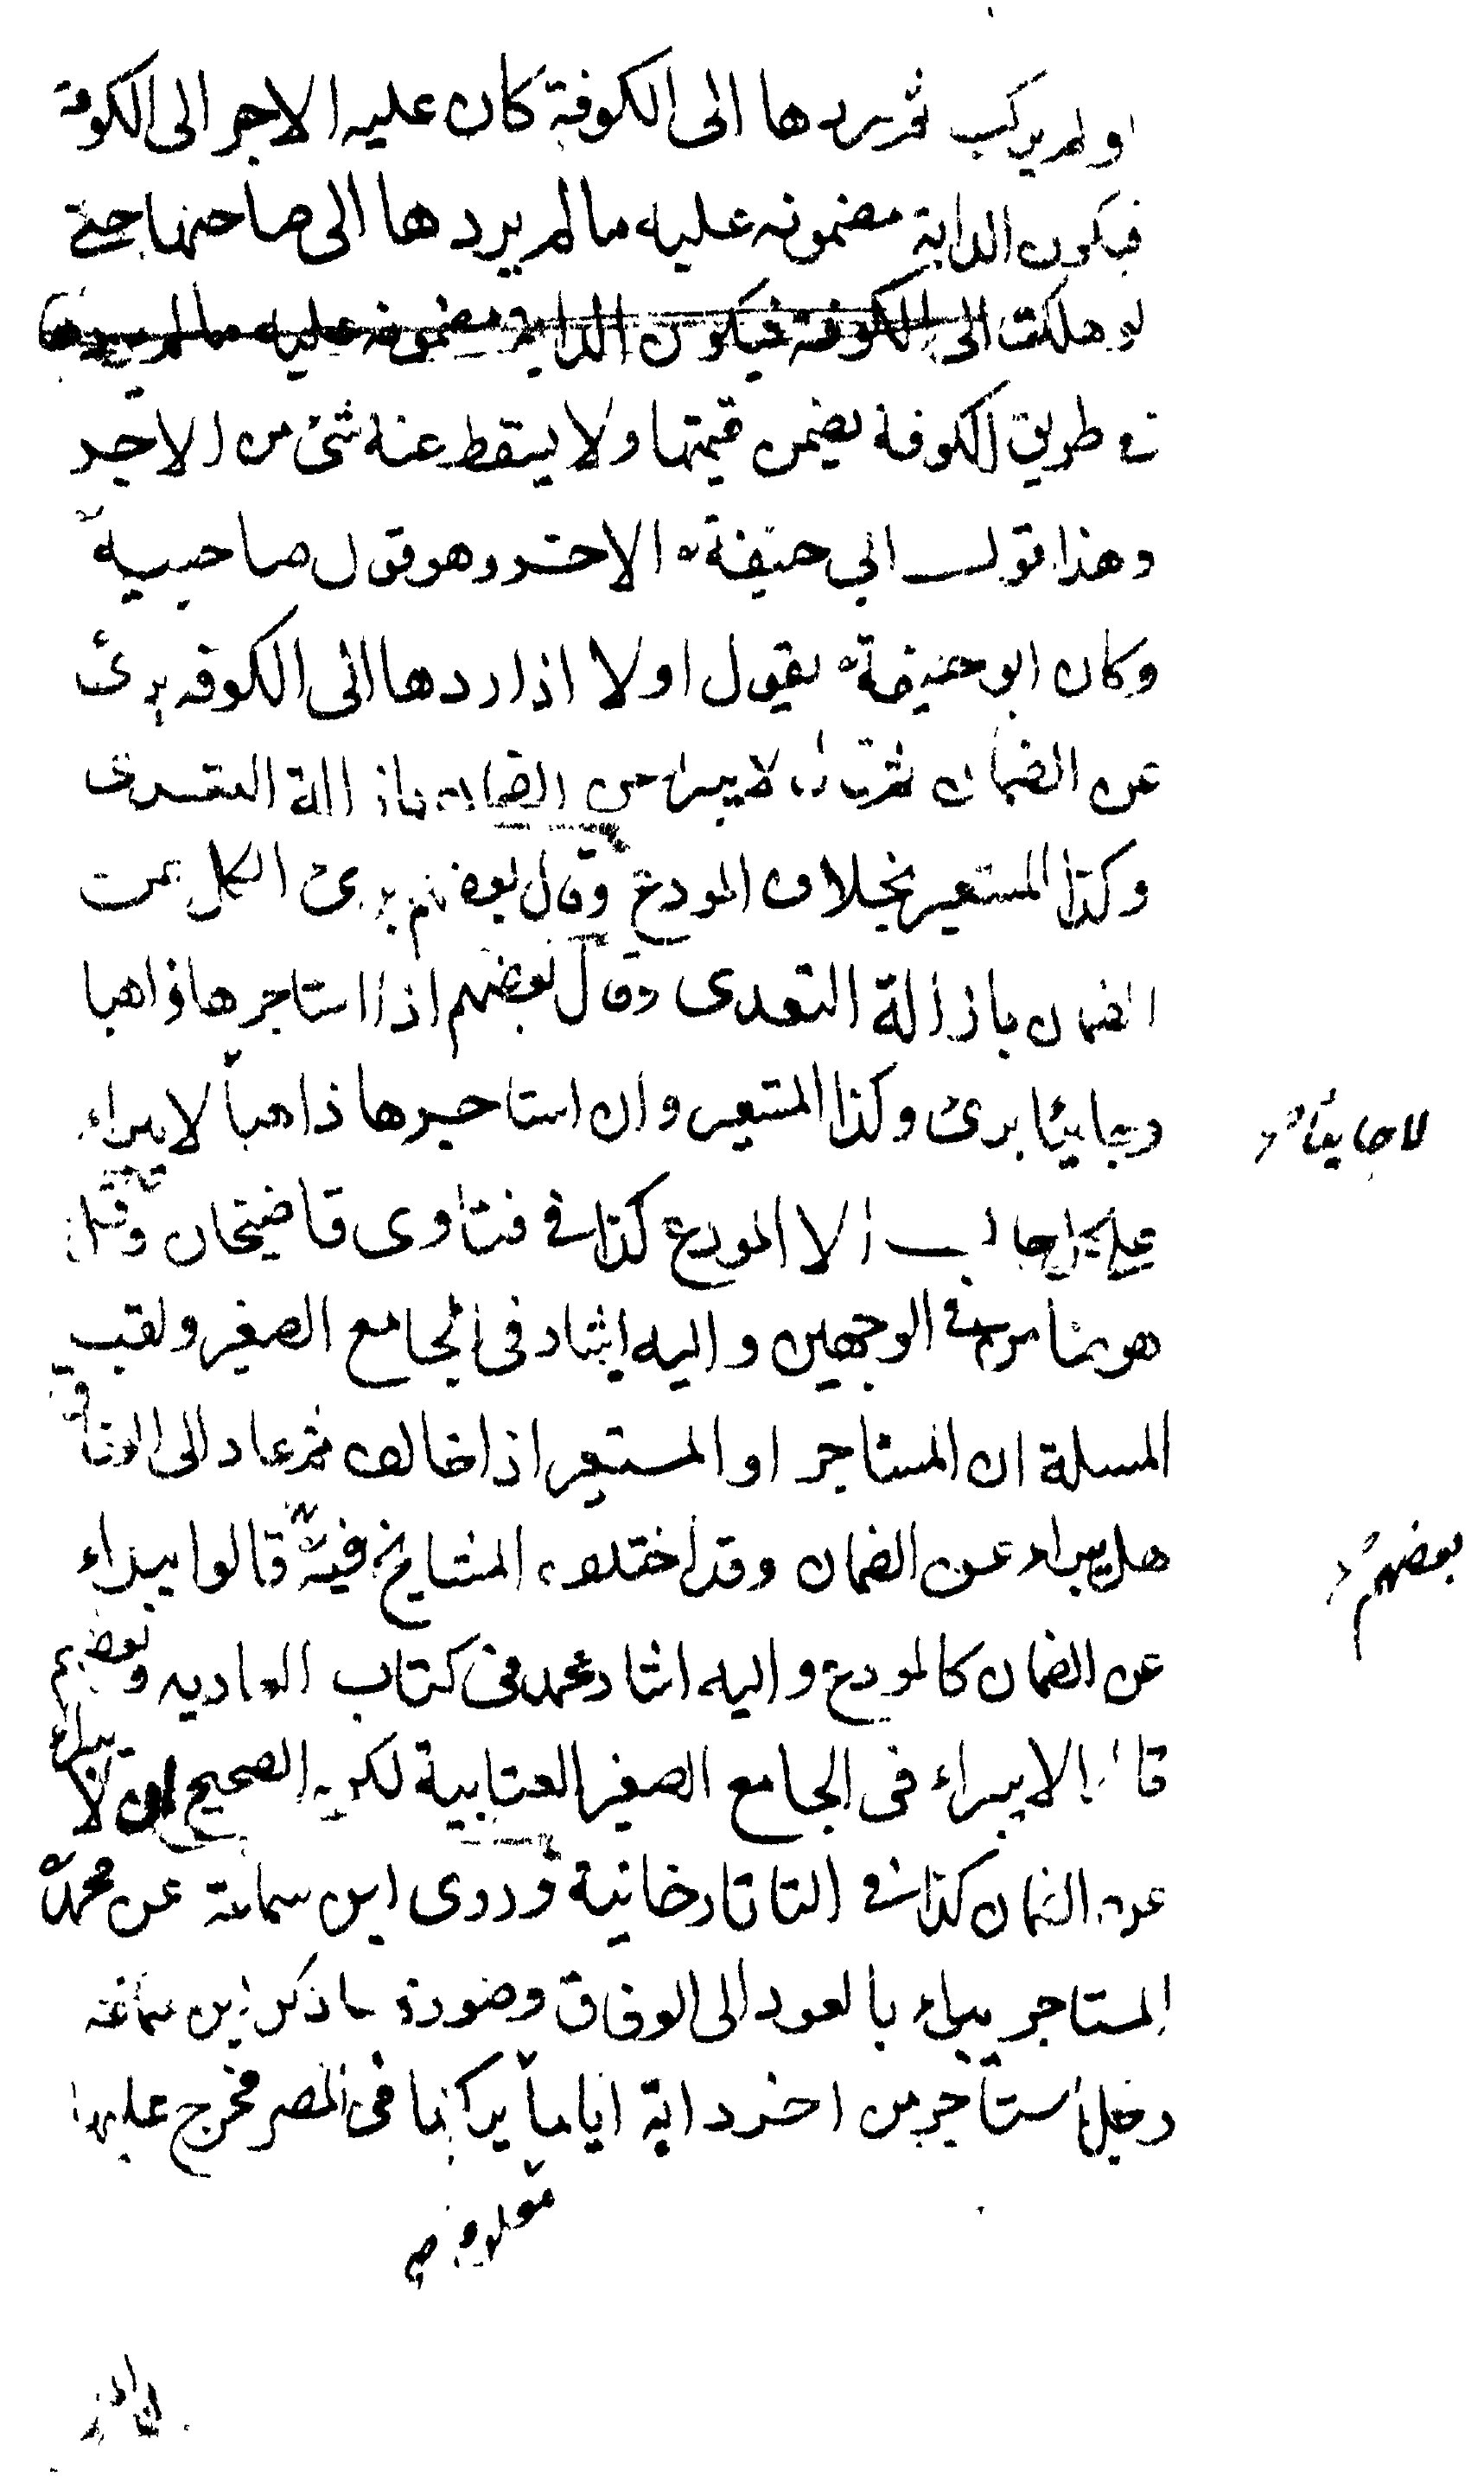 او لم يركب ثم ردها الى الكوفة كان عليه الاجر الى الكوفة
فيكون الدابة مضمونه عليه مالم يردها الى صاحبها حتى
لو هلكت الى الكوفة فيكون الدابة مضمونه عليه مالم يردها
فى طريق الكوفة يضمن قيمتها ولا يسقط عنه شئ من الاجر
وهذا قول ابي حنيفة الاخر وهو قول صاحبيه
وكان ابو حنيفة يقول اولا اذا ردها الى الكوفه برئ
عن الضمان ثم قال لا يبرا من الضمان بازالة التعدى
وكذا المستعير بخلاف المودع وقال بعضهم برئ الكل عن
الضمان بازالة التعدى وقال بعضهم اذا استاجرها ذاهبا
وجايئا برئ وكذا المستعير وان استاجرها ذاهبا لا يبراء
لا جايئا
الا المودع كذا فى فتاوى قاضيخان وقيل
هو ضامن فى الوجهين واليه اشار فى الجامع الصغير ولقب
المسلة ان المستاجر او المستعير اذا خالف ثم عاد الى الوفاق
هل يبراء عن الضمان وقد اختلف المشايخ فيه قالوا يبراء
بعضهم
عن الضمان كالمودع واليه اشار محمد فى كتاب العاريه وبعضهم
قالوا لا يبراء فى الجامع الصغير العتابية لكن الصحيح انه لا يبراء
عن الضمان كذا فى التاتارخانية وروى ابن سماعة عن محمد
المستاجر يبراء بالعود الى الوفاق وصورة ما ذكر ابن سماعه
رجل استاجر من اخر دابة اياما يركبها فى المصر فخرج عليها